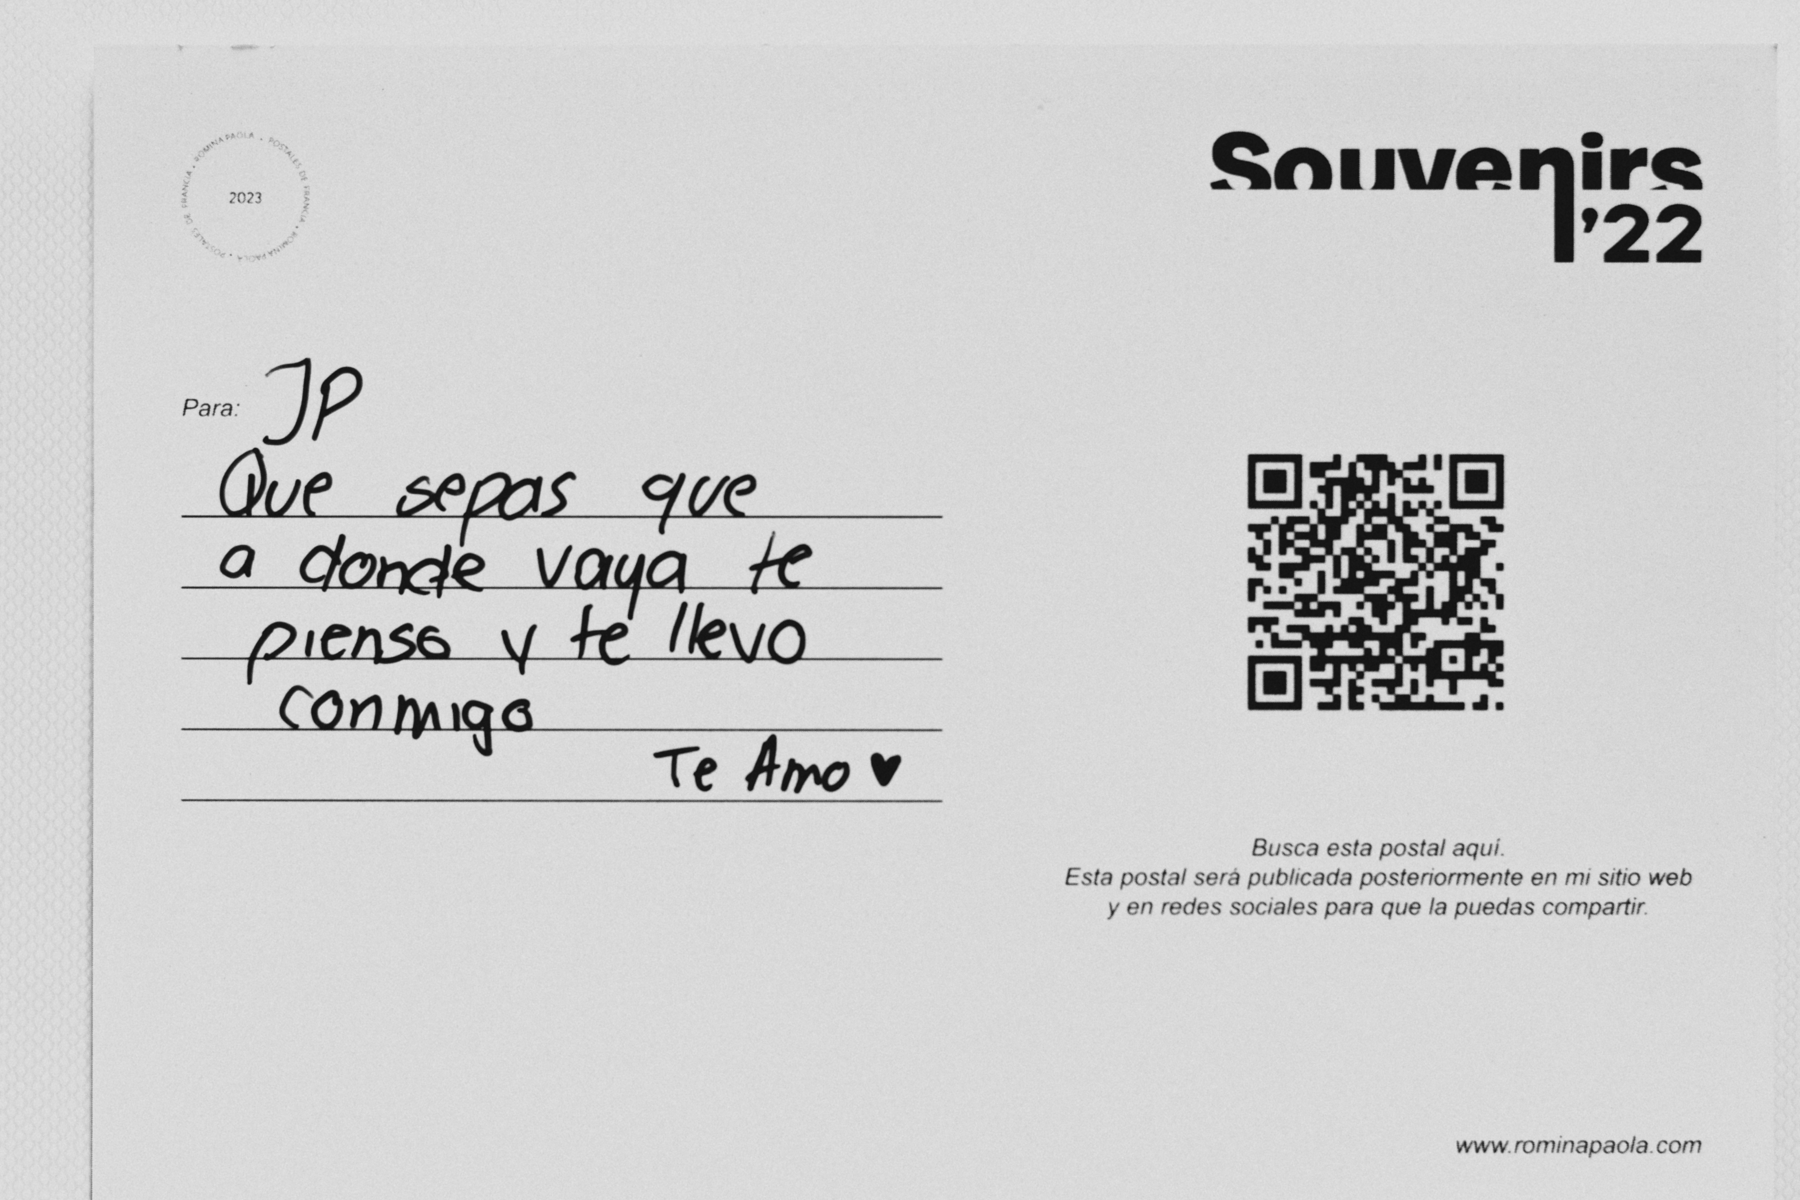 ROMINA PAOLA • POSTALES DE FRANCIA • ROMINA PAOLA • POSTALES DE FRANCIA •
2023
Souvenirs
'22
Para: JP
Que sepas que
a donde vaya te
pienso y te llevo
conmigo
Te Amo ♥
Busca esta postal aquí.
Esta postal será publicada posteriormente en mi sitio web
y en redes sociales para que la puedas compartir.
www.rominapaola.com